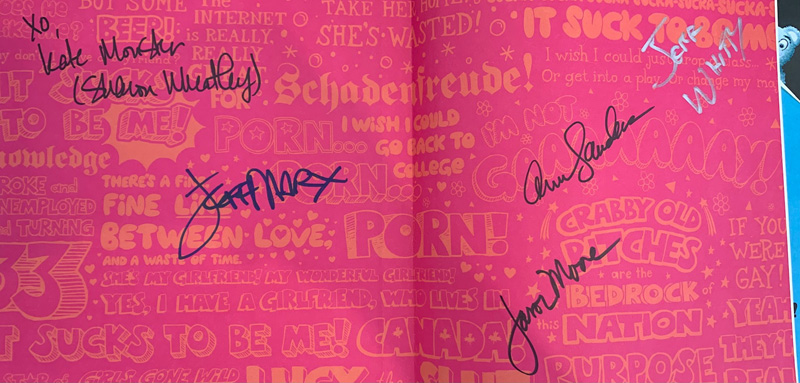 BUT SOME
THE INTERNET
BEER!
IS REALLY,
REALLY
TAKE HER HOME,
SHE'S WASTED!
IT SUCK TO BE ME
xo,
Kate Monster
(Sharon Wheatley)
JEFF WHITTY
I wish I could just
Or get into a play or change my major
Schadenfreude!
FOR
PORN...
I WISH I COULD
GO BACK TO
COLLEGE
I'M NOT
GAAAAAAAY!
IT SUCKS
TO BE ME!
Ann Sanders
Jeff MARX
BROKE and
UNEMPLOYED
AND TURNING
33
THERE'S A FINE
FINE LINE
BETWEEN LOVE,
AND A WASTE OF TIME.
PORN...
PORN!
CRABBY OLD
BITCHES
are the
BEDROCK of
this NATION
IF YOU
WERE
GAY!
Jason Moore
SHE'S MY GIRLFRIEND! MY WONDERFUL GIRLFRIEND!
YES, I HAVE A GIRLFRIEND, WHO LIVES IN
CANADA!
IT SUCKS TO BE ME!
YEAH
THEY'RE
REAL
GIRLS GONE WILD
LUCY THE SLUT
PURPOSE